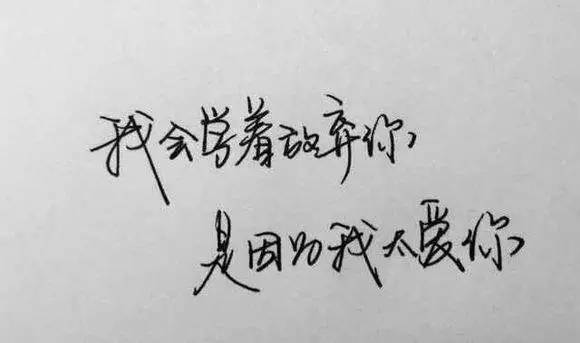 我会学着放弃你,
是因为我太爱你,